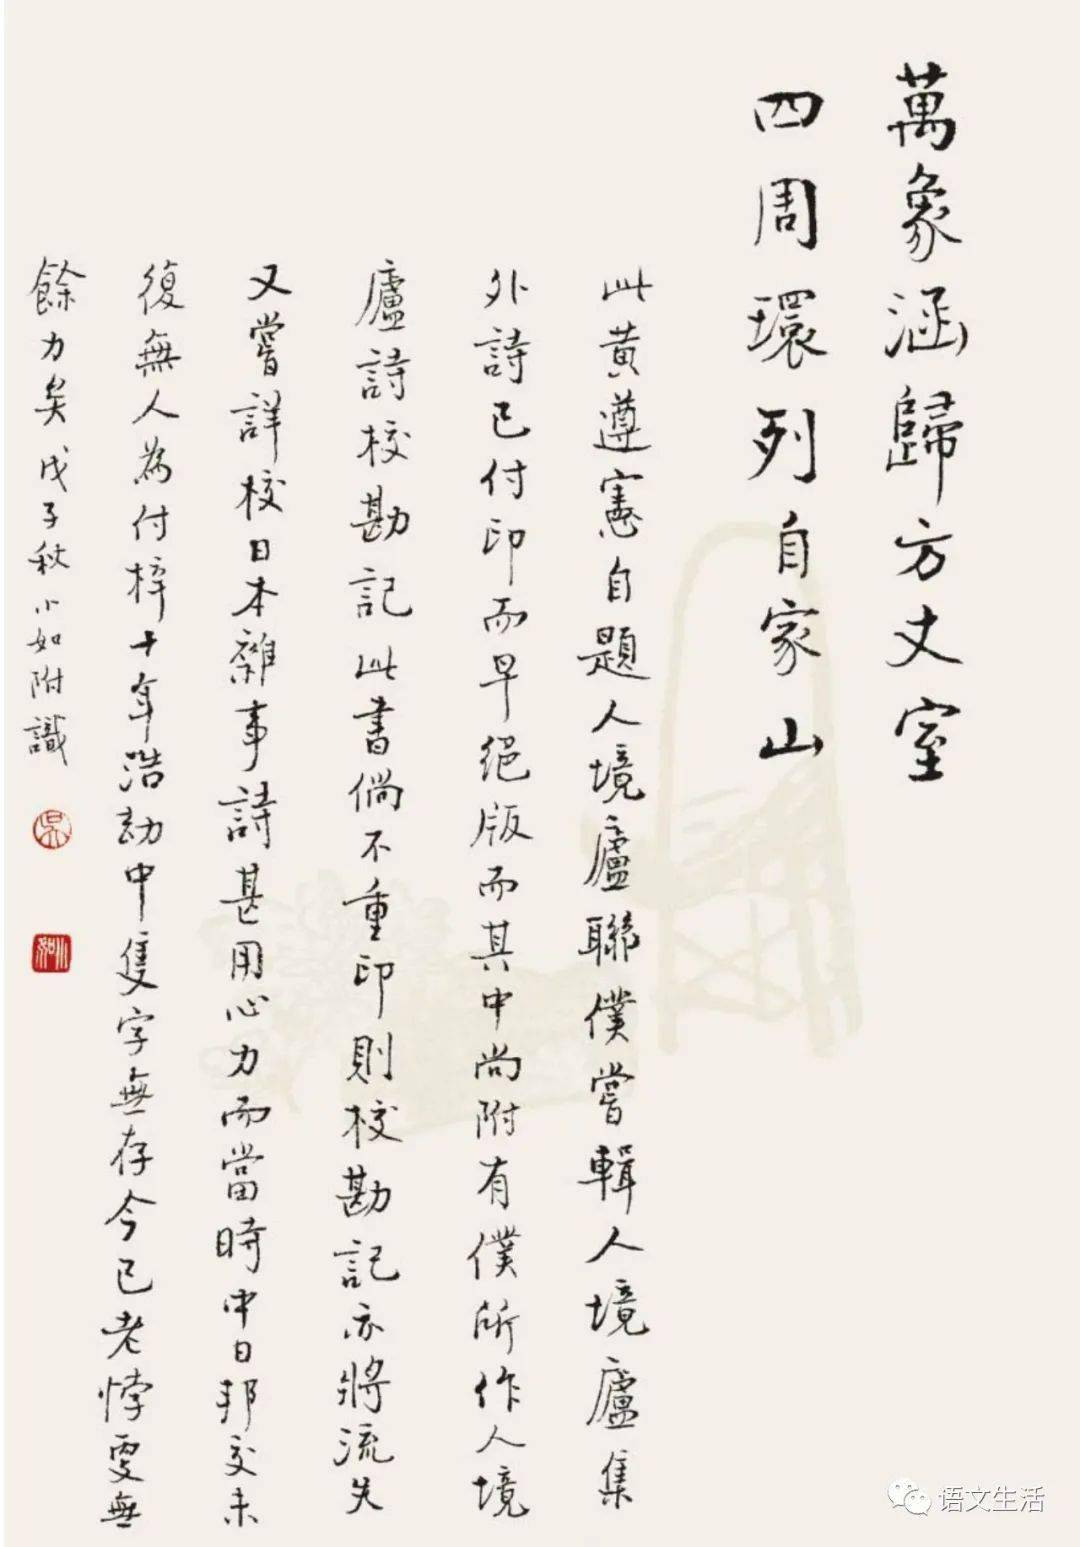 萬象涵歸方丈室
四周環列自家山
此黃遵憲自題人境廬聯僕嘗輯人境廬集
外詩已付印而早絕版而其中尚附有僕所作人境
廬詩校勘記此書倘不重印則校勘記亦將流失
又嘗詳校日本雜事詩甚用心力而當時中日邦交未
復無人為付梓十年浩劫中隻字無存今已老悖更無
餘力矣戊子秋小如附識
吳
小如
语文生活